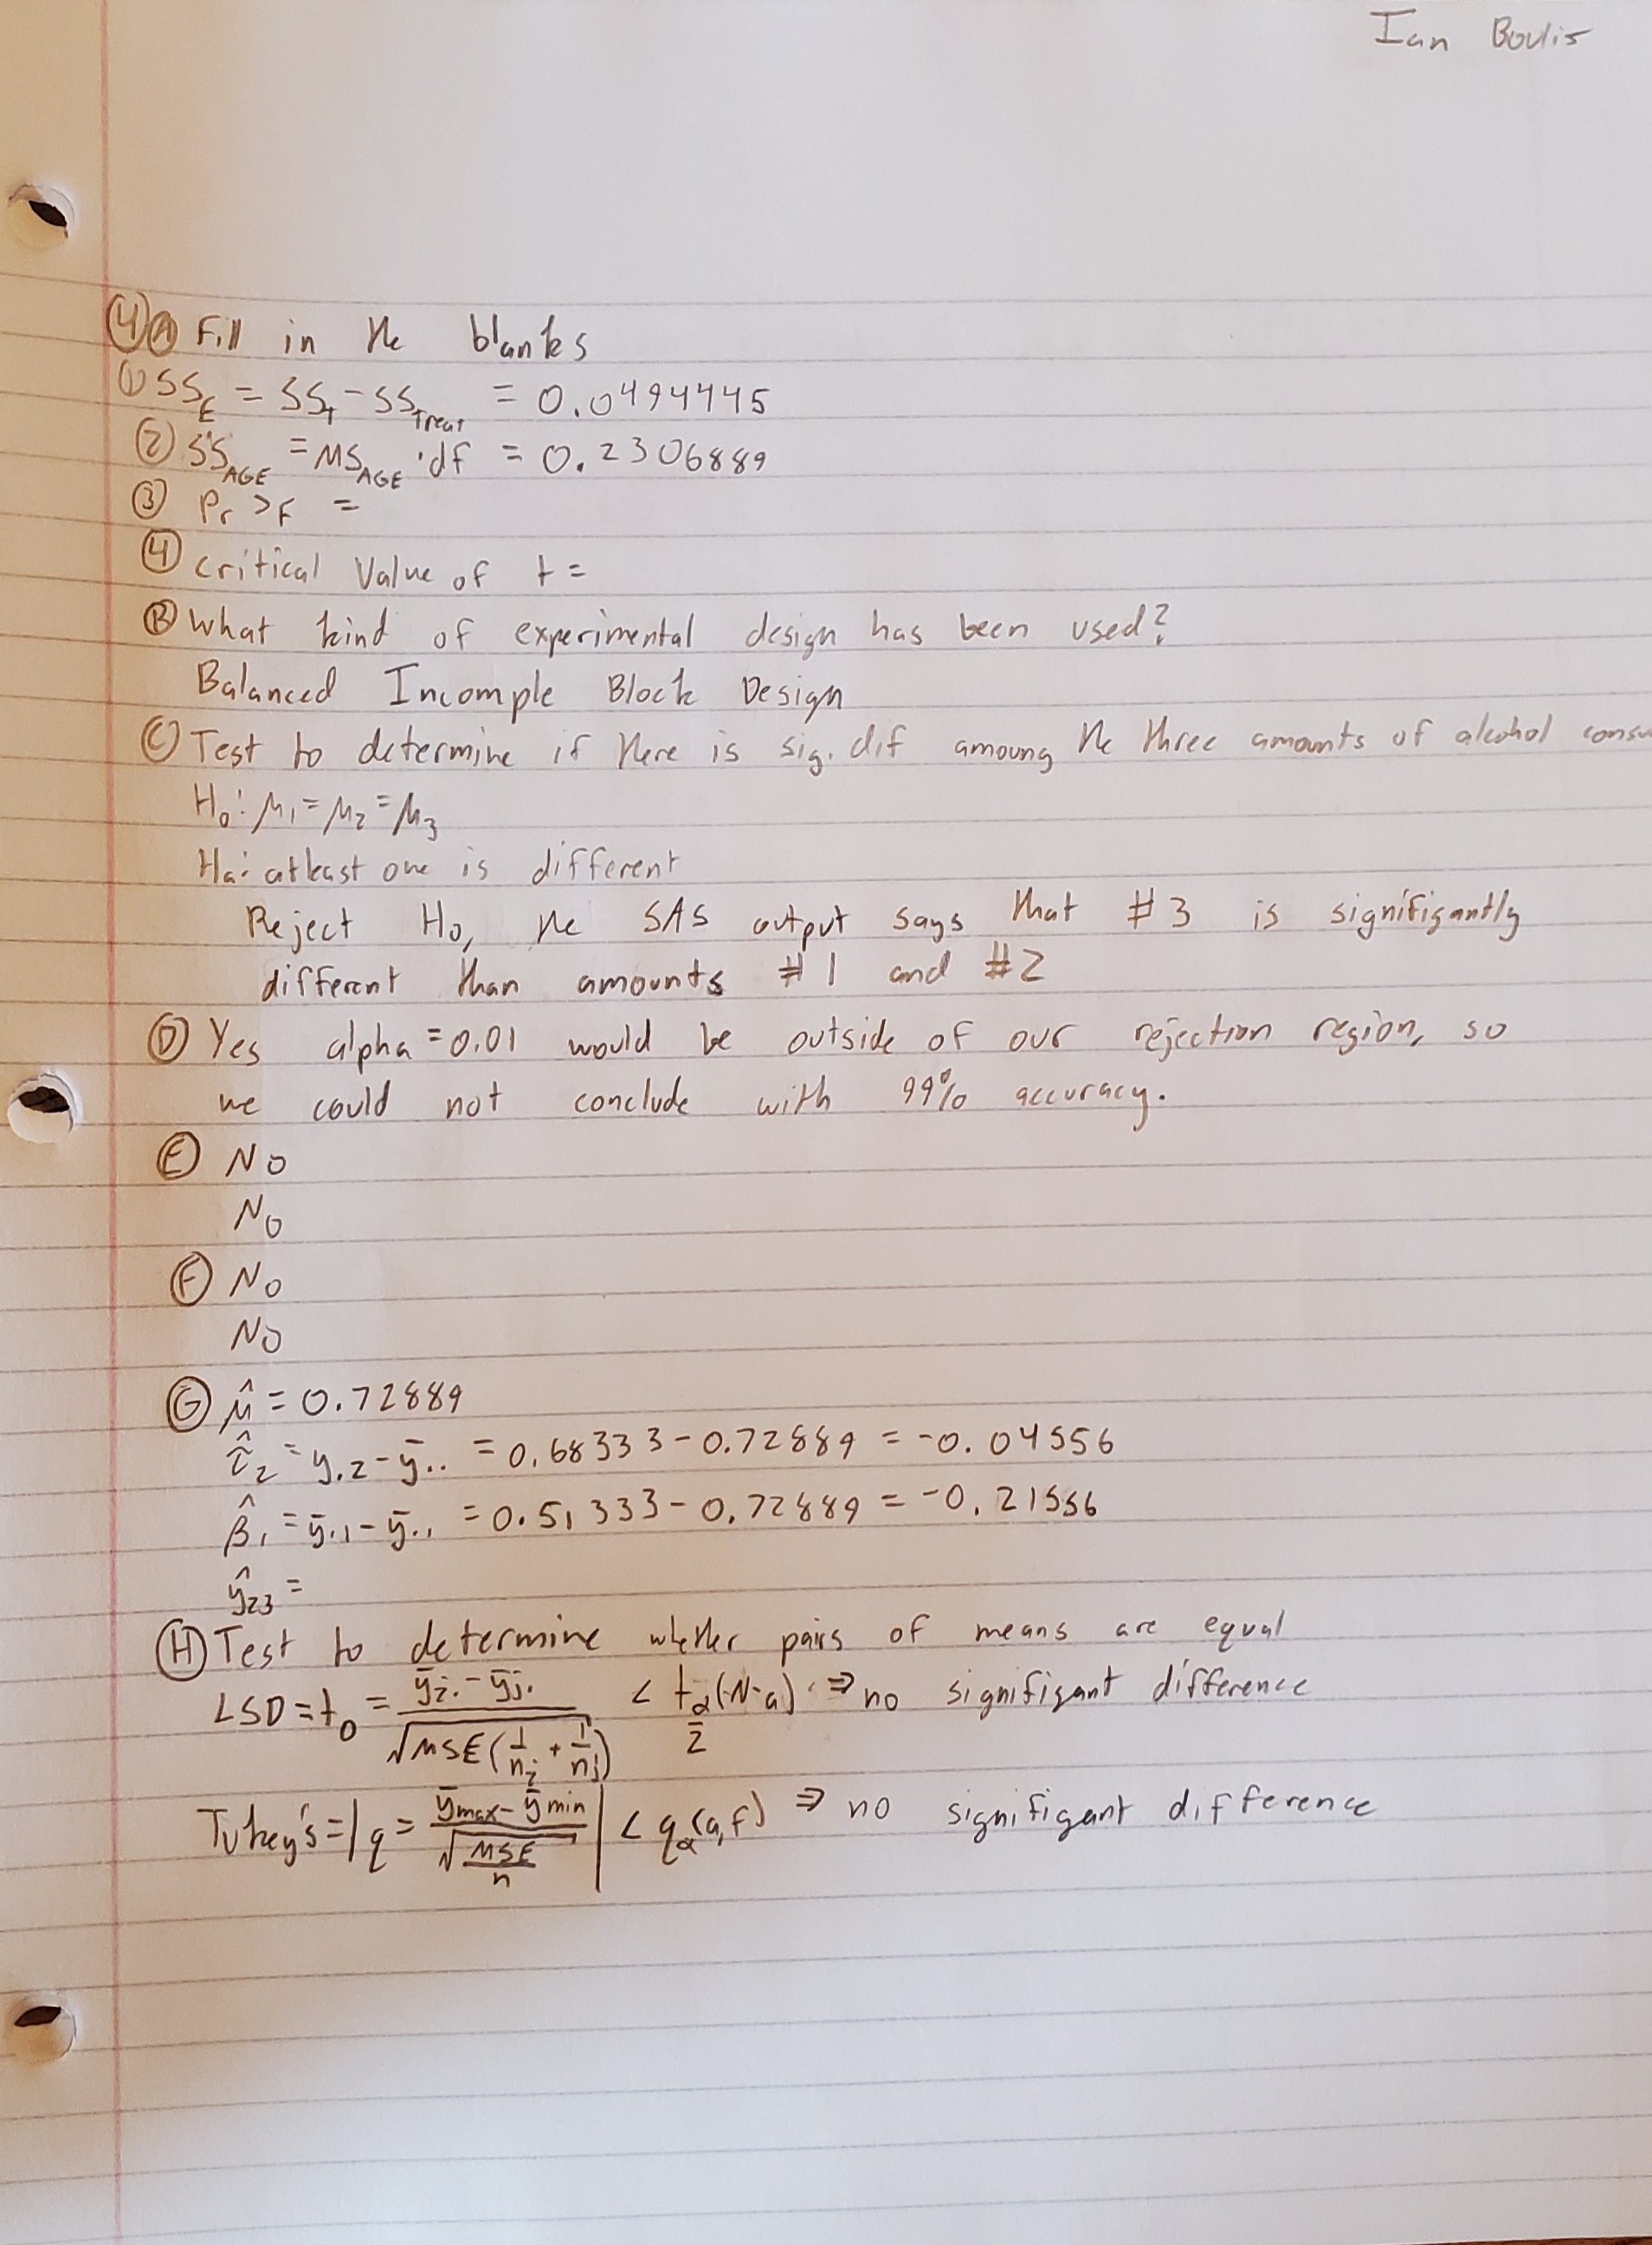 Ian Boulis
④Ⓐ Fill in the blanks
① SS_E = SS_T - SS_Treat = 0.0494445
② SS_AGE = MS_AGE · df = 0.2306889
③ Pr > F =
④ critical Value of t =
Ⓑ What kind of experimental design has been used?
Balanced Incomple Block Design
Ⓒ Test to determine if there is sig. dif amoung the three amounts of alcohol consu
H₀: μ₁ = μ₂ = μ₃
Ha: atleast one is different
Reject H₀, the SAS output says that #3 is signifigantly
different than amounts #1 and #2
Ⓓ Yes alpha = 0.01 would be outside of our rejection region, so
we could not conclude with 99% accuracy.
Ⓔ No
No
Ⓕ No
No
Ⓖ μ̂ = 0.72889
τ̂₂ = y.₂ - ȳ.. = 0.68333 - 0.72889 = -0.04556
β̂₁ = ȳ.₁ - ȳ.. = 0.51333 - 0.72889 = -0.21556
ŷ₂₃ =
Ⓗ Test to determine whether pairs of means are equal
LSD = t₀ = (ȳi. - ȳj.) / √MSE(1/ni + 1/nj) < t_α/2 (N-a) ⇒ no signifigant difference
Tukey's = | q = (ȳmax - ȳmin) / √(MSE/n) | < q_α(a,f) ⇒ no signifigant difference